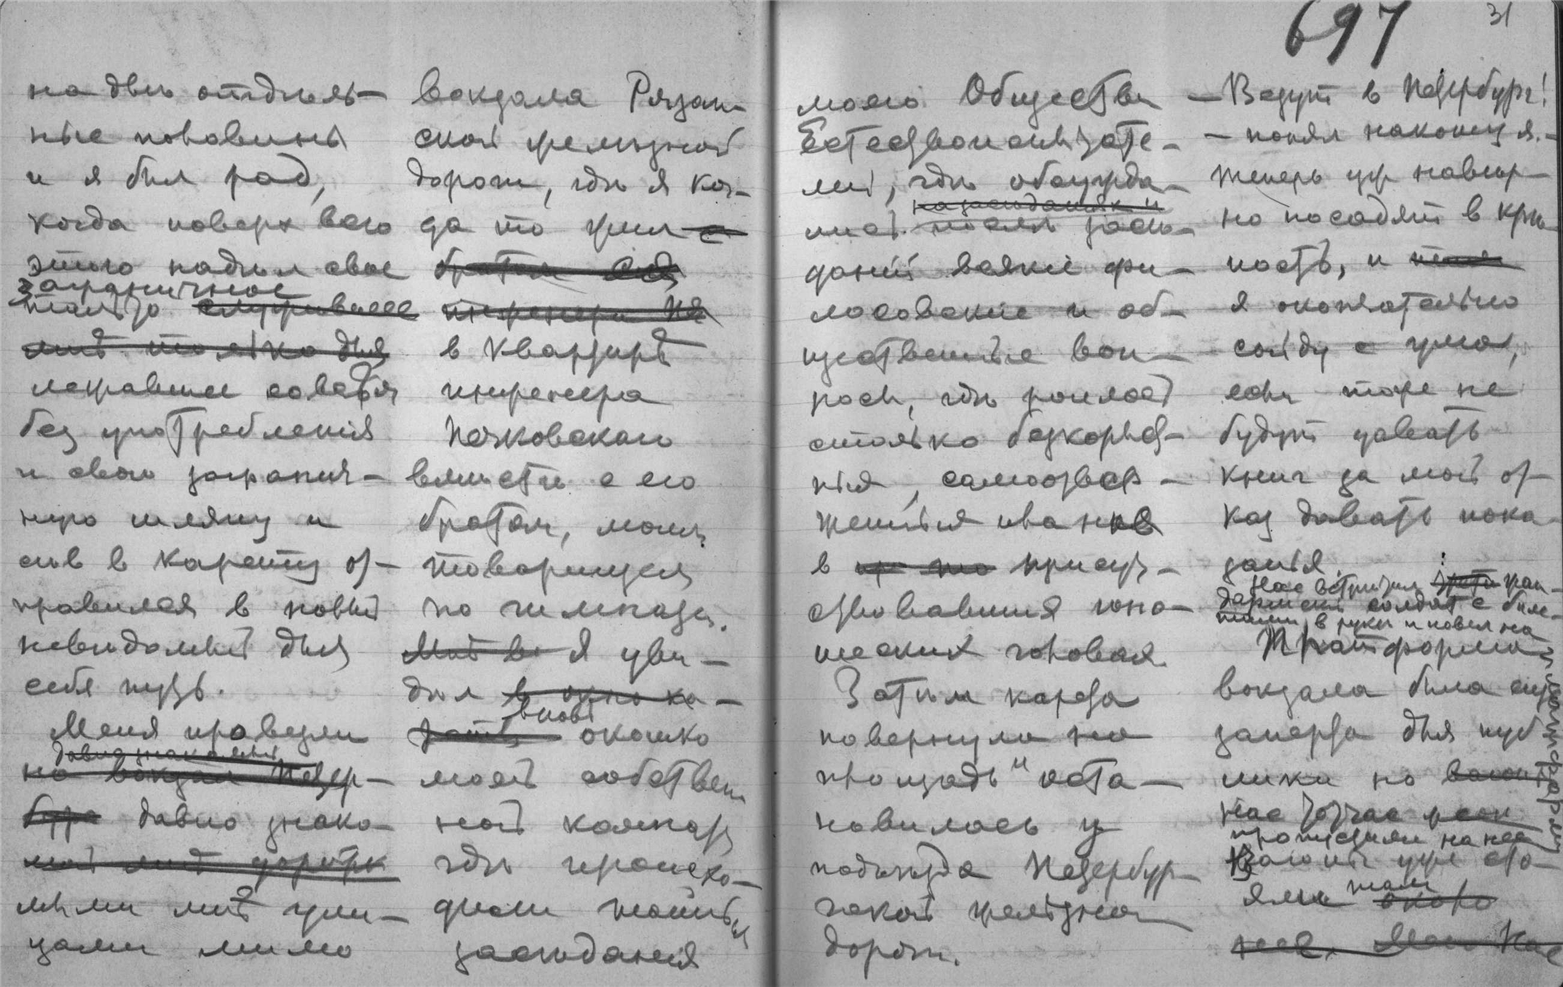 697
31
на двѣ отдѣль-
ные половины
и я был рад,
когда поверх всего
этого надѣл свое
заграничное
пальто
лежавшее совсѣм
без употребления
и свою загранич-
ную шляпу и
сѣв в карету от-
правился в новый
невѣдомый для
себя путь.
Меня провезли
давно знако-
мыми мнѣ ули-
цами мимо
вокзала Рязан-
ской желѣзной
дороги, гдѣ я ког-
да то жил с
братом
в квартирѣ
инженера
Печковскаго
вмѣстѣ с его
братом, моим
товарищем
по гимназии.
Я уви-
дѣл
вновь
окошко
моей собствен-
ной комнаты
гдѣ происхо-
дили тайныя
засѣдания
моего Общества
Естествоиспытате-
лей, гдѣ обсужда-
лись
на засѣданьях и
послѣ засѣ-
даний всякие фи-
лософские и об-
щественные воп-
росы, гдѣ
столько безкорыст-
ия, самоотвер-
жения
в присут-
ствовавших юно-
шеских головах.
Затѣм карета
повернула на
площадь и оста-
новилась у
подъѣзда Петербур-
гской желѣзной
дороги.
— Везут в Петербург!
— понял наконец я. —
Теперь уж навѣр-
но посадят в крѣ-
пость, и
я окончательно
сойду с ума,
если тоже не
будут давать
книг за мой от-
каз давать пока-
зания.
Нас встрѣтили жан-
дармские солдаты с биле-
тами в руках и повели на
платформу
Платформа
вокзала была еще
заперта для пуб-
лики но
нас тотчас
пропустили на нее
Вагоны уже сто-
яли там